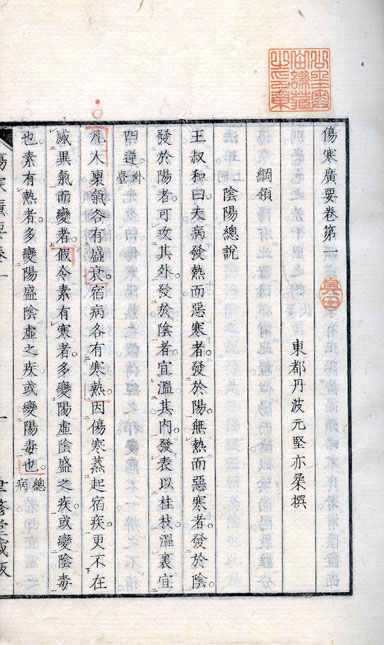 傷寒廣要卷第一
東都丹波元堅亦柔撰
綱領
陰陽總說
王叔和曰夫病發熱而惡寒者發於陽無熱而惡寒者發於陰
發於陽者可攻其外發於陰者宜溫其內發表以桂枝溫裏宜
四逆 外臺
凡木稟氣各有盛衰宿病各有寒熱因傷寒蒸起宿疾更不在
感異氣而變者假令素有寒者多變陽虛陰盛之疾或變陰毒
也素有熱者多變陽盛陰虛之疾或變陽毒也 總病
傷寒廣要卷一
一
奥田